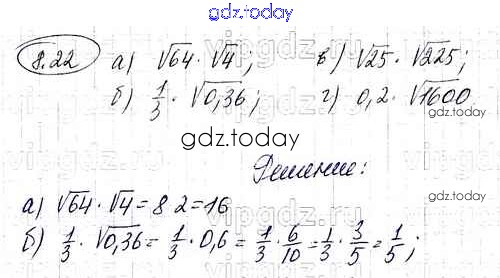 gdz.today
8.22 а) √64 · √4; в) √25 · √225;
б) 1/3 · √0,36; г) 0,2 · √1600
gdz.today
gdz.today
Решение:
а) √64 · √4 = 8 2 = 16
б) 1/3 · √0,36 = 1/3 · 0,6 = 1/3 · 6/10 = 1/3 · 3/5 = 1/5;
gdz.today